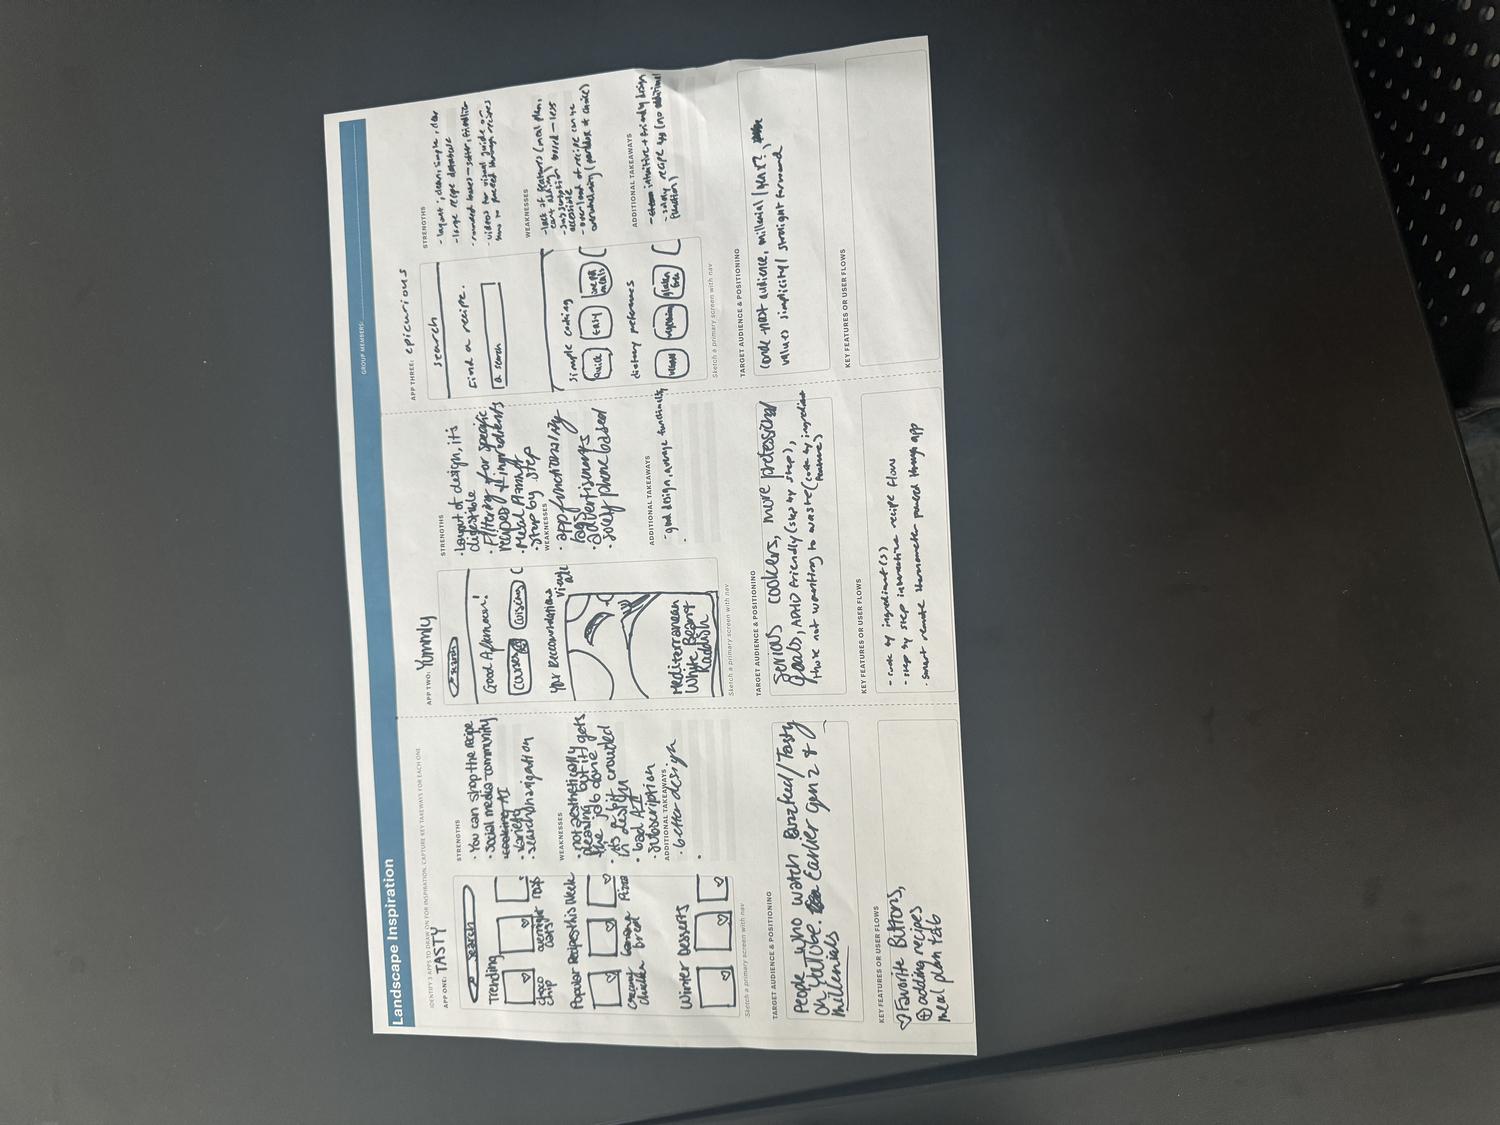 Landscape Inspiration
GROUP MEMBERS:
IDENTIFY 3 APPS TO DRAW ON FOR INSPIRATION. CAPTURE KEY TAKEWAYS FOR EACH ONE
APP ONE: TASTY
search
Trending
choco
chip
overnight
oats
roast
Popular Recipes this Week
creamy
chicken
banana
bred
Pizza
Winter Desserts
Sketch a primary screen with nav
STRENGTHS
• You can shop the recipe
• social media-community
• cooking AI
• variety
• search/navigation
WEAKNESSES
• not aesthetically
pleasing but it gets
the job done
• it's a bit crowded
in design
• bad AI
• subscription
ADDITIONAL TAKEAWAYS
• better design
•
TARGET AUDIENCE & POSITIONING
People who watch Buzzfeed/Tasty
on YouTube. Earlier gen z &
millenials
KEY FEATURES OR USER FLOWS
♡ Favorite Buttons,
⊕ adding recipes
meal plan tab
APP TWO: Yummly
search
Good Afternoon!
courses
cuisines
Your Reccomendations
view all
Mediterranean
White Bean &
Raddish
Sketch a primary screen with nav
STRENGTHS
• Layout of design, it's
digestible
• Filtering for specific
recipes & ingredients
• Meal Planner
• Step by step
WEAKNESSES
• app functionality
lags
• advertisments
• solely phone based
ADDITIONAL TAKEAWAYS
- good design, average functionality
•
TARGET AUDIENCE & POSITIONING
serious cookers, more professional
goals, ADHD friendly (step by step),
those not wanting to waste (cook by ingredient
feature)
KEY FEATURES OR USER FLOWS
- cook by ingredient(s)
- step by step interactive recipe flows
- smart remote thermometer powered through app
APP THREE: epicurious
search
Find a recipe.
search
simple cooking
quick
easy
one pot
meals
dietary preferences
vegan
vegetarian
gluten
free
Sketch a primary screen with nav
STRENGTHS
- layout, clean, simple, clear
- large recipe database
- rounded boxes - softer, friendlier
- videos for visual guide on
how to proceed through recipes
WEAKNESSES
- lack of features (meal plan,
cart adding)
- subscription based - less
accessible
- overload of recipe can be
overwhelming (paradox of choice)
ADDITIONAL TAKEAWAYS
- intuitive + friendly design
- solely recipe app (no additional
function)
TARGET AUDIENCE & POSITIONING
conde-nast audience, millenial/gen x?,
values simplicity/ straight forward
KEY FEATURES OR USER FLOWS